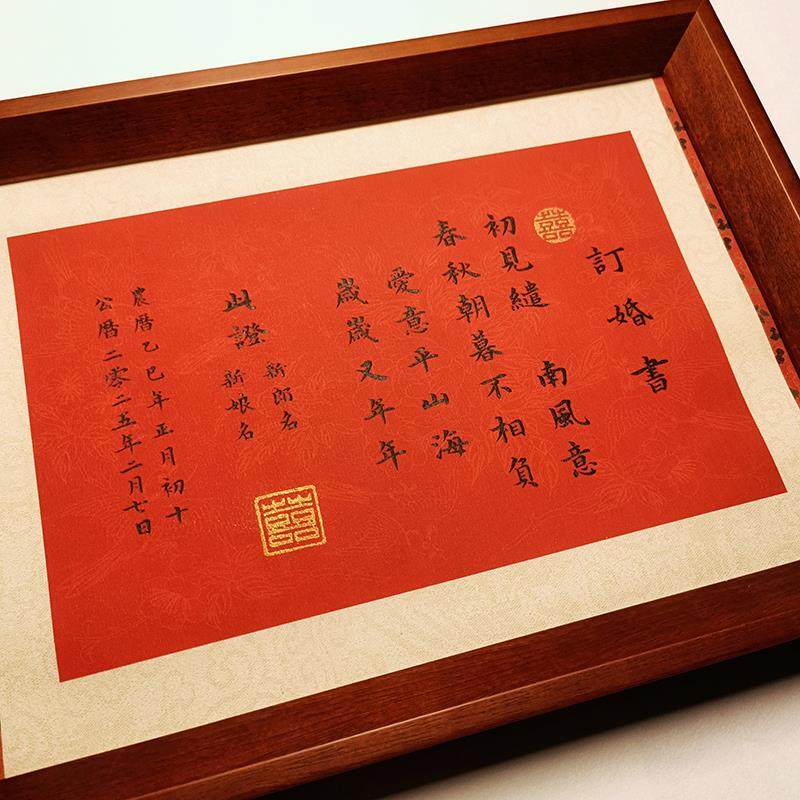 訂婚書
囍
初見繾 南風意
春秋朝暮不相負
愛意平山海
歲歲又年年
此證
新郎名
新娘名
囍
農曆乙巳年正月初十
公曆二零二五年二月七日